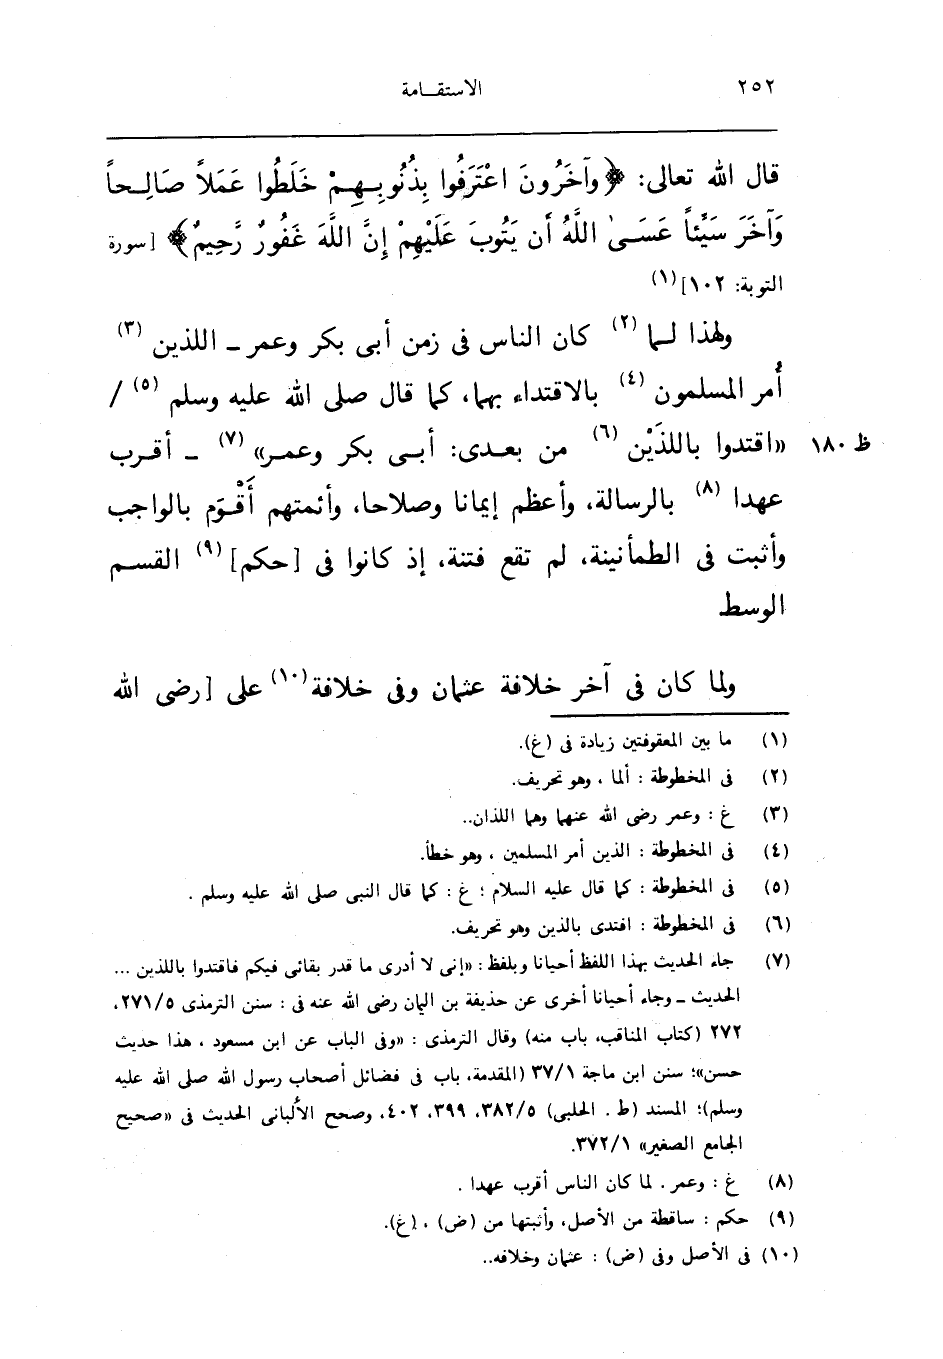 ٢٥٢ الاستقامة
قال الله تعالى: ﴿وآخَرُونَ اعْتَرَفُوا بِذُنُوبِهِمْ خَلَطُوا عَمَلاً صَالِحاً
وَآخَرَ سَيِّئاً عَسَىٰ اللَّهُ أَن يَتُوبَ عَلَيْهِمْ إِنَّ اللَّهَ غَفُورٌ رَّحِيمٌ﴾ [سورة
التوبة: ١٠٢](١)
ولهذا لـما (٢) كان الناس فى زمن أبى بكر وعمر ـ اللذين (٣)
أُمر المسلمون (٤) بالاقتداء بهما، كما قال صلى الله عليه وسلم (٥) /
«اقتدوا باللذَيْن (٦) من بعدى: أبى بكر وعمر» (٧) ـ أقرب ظ ١٨٠
عهدا (٨) بالرسالة، وأعظم إيمانا وصلاحا، وأئمتهم أَقْوَم بالواجب
وأثبت فى الطمأنينة، لم تقع فتنة، إذ كانوا فى [حكم] (٩) القسم
الوسط
ولما كان فى آخر خلافة عثمان وفى خلافة(١٠) على [رضى الله
(١) ما بين المعقوفتين زيادة فى (غ).
(٢) فى المخطوطة : ألما ، وهو تحريف.
(٣) غ : وعمر رضى الله عنهما وهما اللذان..
(٤) فى المخطوطة : الذين أمر المسلمين ، وهو خطأ.
(٥) فى المخطوطة : كما قال عليه السلام ؛ غ : كما قال النبى صلى الله عليه وسلم .
(٦) فى المخطوطة : افتدى بالذين وهو تحريف.
(٧) جاء الحديث بهذا اللفظ أحيانا وبلفظ : «إنى لا أدرى ما قدر بقائى فيكم فاقتدوا باللذين ...
الحديث ـ وجاء أحيانا أخرى عن حذيفة بن اليمان رضى الله عنه فى : سنن الترمذى ٢٧١/٥،
٢٧٢ (كتاب المناقب، باب منه) وقال الترمذى : «وفى الباب عن ابن مسعود ، هذا حديث
حسن»؛ سنن ابن ماجة ٣٧/١ (المقدمة، باب فى فضائل أصحاب رسول الله صلى الله عليه
وسلم)؛ المسند (ط . الحلبى) ٣٨٢/٥، ٣٩٩، ٤٠٢، وصحح الألبانى الحديث فى «صحيح
الجامع الصغير» ٣٧٢/١.
(٨) غ : وعمر . لما كان الناس أقرب عهدا .
(٩) حكم : ساقطة من الأصل، وأثبتها من (ض) ، (غ).
(١٠) فى الأصل وفى (ض) : عثمان وخلافه..